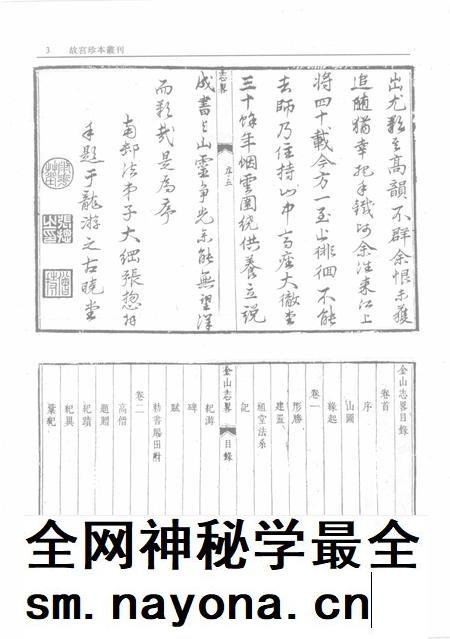 3 故宮珍本叢刊
出尤至高韻不群余恨未獲
追隨猶幸把手余往來江上
將四十載今方一至山徘徊不能
去師乃住持山中高座大徹堂
三十餘年烟雲圍繞供養立說
志畧 序五
成書與山靈爭光余能無望洋
而歎哉是為序
南法弟子大綱張揔
手題于龍游之古曉堂
金山志畧目錄
卷首
序
山圖
緣起
卷一
形勝
建置
祖堂法系
記
金山志畧 目錄
紀游
碑
賦
勅書賜田附
卷二
高僧
題贈
紀蹟
紀異
全网神秘学最全
sm.nayona.cn